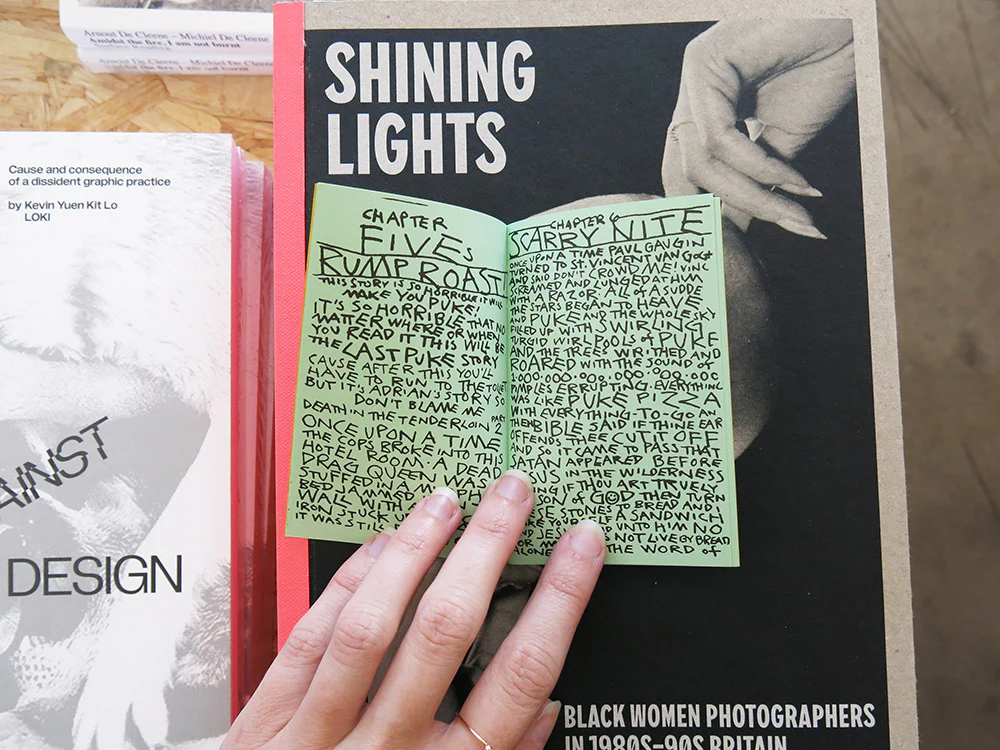 Arnout De Cleene – Michiel De Cleene
Amidst the fire, I am not burnt
Arnout De Cleene – Michiel De Cleene
Amidst the fire, I am not burnt
Cause and consequence
of a dissident graphic practice
by Kevin Yuen Kit Lo
LOKI
AINST
DESIGN
SHINING
LIGHTS
CHAPTER
FIVES
RUMP ROAST
THIS STORY IS SO HORRIBLE IT WILL
MAKE YOU PUKE!
IT'S SO HORRIBLE THAT NO
MATTER WHERE OR WHEN
YOU READ IT THIS WILL BE
THE LAST PUKE STORY
CAUSE AFTER THIS YOU'LL
HAVE TO RUN TO THE TOILET
BUT IT'S ADRIAN'S STORY SO
DON'T BLAME ME
DEATH IN THE TENDERLOIN PART 2
ONCE UPON A TIME
THE COPS BROKE INTO THIS
HOTEL ROOM A DEAD
DRAG QUEEN WAS
STUFFED IN A M
BED JAMMED
WALL WITH A
IRON STUCK U
IT WAS STILL
CHAPTER 6
SCARRY NITE
ONCE UPON A TIME PAUL GAUGIN
TURNED TO ST. VINCENT VAN GOGH
AND SAID DON'T CROWD ME! VINC
SCREAMED AND LUNGED AT HIM
WITH A RAZOR. ALL OF A SUDDE
THE STARS BEGAN TO HEAVE
AND PUKE AND THE WHOLE SKY
FILLED UP WITH SWIRLING
TURGID WIRLPOOLS of PUKE
AND THE TREES WRITHED AND
ROARED WITH THE SOUND of
PIMPLES ERRUPTING. EVERYTHING
WAS LIKE PUKE PIZZA
WITH EVERYTHING-TO-GO AN
THEN BIBLE SAID IF THINE EAR
OFFENDS THEE CUT IT OFF
AND SO IT CAME TO PASS THAT
SATAN APPEARED BEFORE
JESUS IN THE WILDERNESS
IF THOU ART TRUELY
SON of GOD THEN TURN
THESE STONES TO BREAD AND
YOURSELF A SANDWICH
AND JES UNTO HIM NO
NOT LIVE BY BREAD
ALONE THE WORD of
BLACK WOMEN PHOTOGRAPHERS
IN 1980S–90S BRITAIN